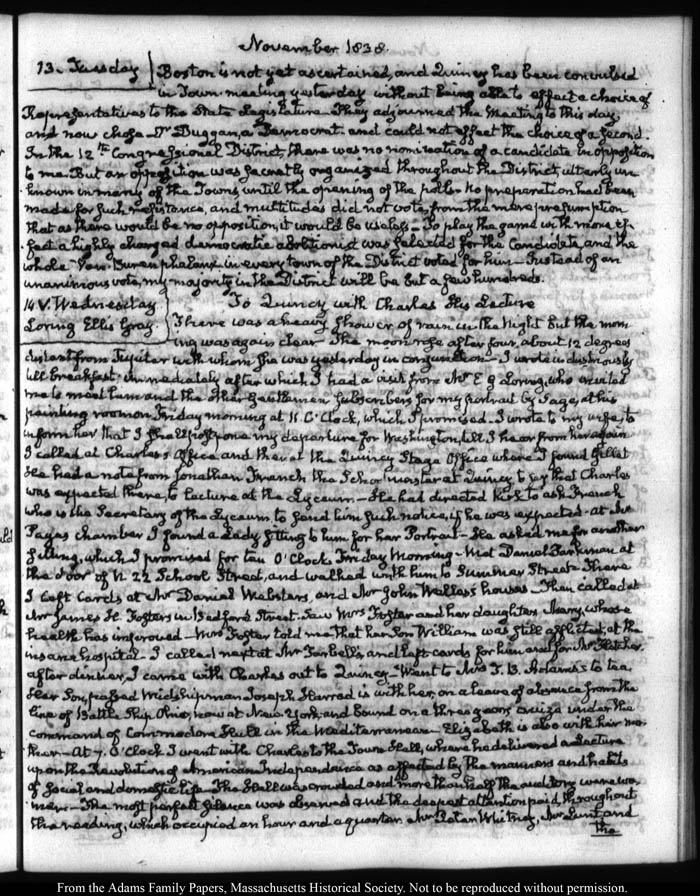 November 1838.
13. Tuesday Boston is not yet ascertained, and Quincy has been convulsed
in Town-meeting yesterday without being able to effect a choice of
Representatives to the State Legislature. They adjourned the Meeting to this day,
and now chose Dr Duggan, a Democrat and could not effect the choice of a second.
In the 12th Congressional District, there was no nomination of a candidate in opposition
to me. But an opposition was secretly organized throughout the District, utterly un-
known in many of the Towns, until the opening of the polls. No preparation had been
made for such resistance, and multitudes did not vote, from the mere presumption
that as there would be no opposition, it would be useless. To play the game with more ef-
fect a highly charged democratic abolitionist was selected for the Candidate, and the
whole Van Buren phalanx in every town of the District voted for him. Instead of an
unanimous vote, my majority in the District will be but a few hundreds.
14. V. Wednesday To Quincy with Charles His Lecture
Loring Ellis Gray. There was a heavy shower of rain in the Night but the morn-
ing was again clear. The moon rose after four, about 12 degrees
distant from Jupiter with whom she was yesterday in conjunction. I wrote industriously
till breakfast. immediately after which I had a visit from Mr E G Loring, who invited
me to meet him and the other Gentlemen subscribers for my portrait by Page, at his
painting room on Friday morning at 11. O'Clock, which I promised. I wrote to my wife, to
inform her that I shall postpone my departure for Washington, till I hear from her again
I called at Charles's Office and then at the Quincy Stage Office where I found Gillet
He had a note from Jonathan French the School master at Quincy to say that Charles
was expected there, to lecture at the Lyceum. He had directed Kirk to ask French
who is the Secretary of the Lyceum to send him such notice, if he was expected. at Mr
Pages chamber I found a Lady sitting to him for her Portrait. He asked me for another
sitting, which I promised for ten O'Clock Friday Morning. Met Daniel Parkman at
the door of N. 22 School Street, and walked with him to Summer Street. There
I left Cards at Mr Daniel Websters, and Mr John Welles's houses. Then called at
Mr James H. Fosters in Bedford Street. Saw Mrs Foster and her daughter Mary, whose
health has improved. Mrs Foster told me that her Son William was still afflicted, at the
insane hospital. I called next at Mr Tarbell's, and left cards for him and for Mr Fletcher.
after dinner, I came with Charles out to Quincy. Went to Mrs T. B. Adams's to tea
Her Son, passed Midshipman Joseph Harrod is with her, on a leave of absence from the
line of Battle Ship Ohio, now at New-York, and bound on a three years cruize under the
command of Commodore Hull in the Mediterranean. Elizabeth is also with her mo-
ther. At 7. O'Clock I went with Charles to the Town Hall, where he delivered a Lecture
upon the Revolution of American Independence as affected by the manners and habits
of social and domestic life. The Hall was crowded and more than half the auditory were wo-
men. The most perfect silence was observed and the deepest attention paid throughout
the reading, which occupied an hour and a quarter. Mr Whitney, Mr Lunt and
the
From the Adams Family Papers, Massachusetts Historical Society. Not to be reproduced without permission.